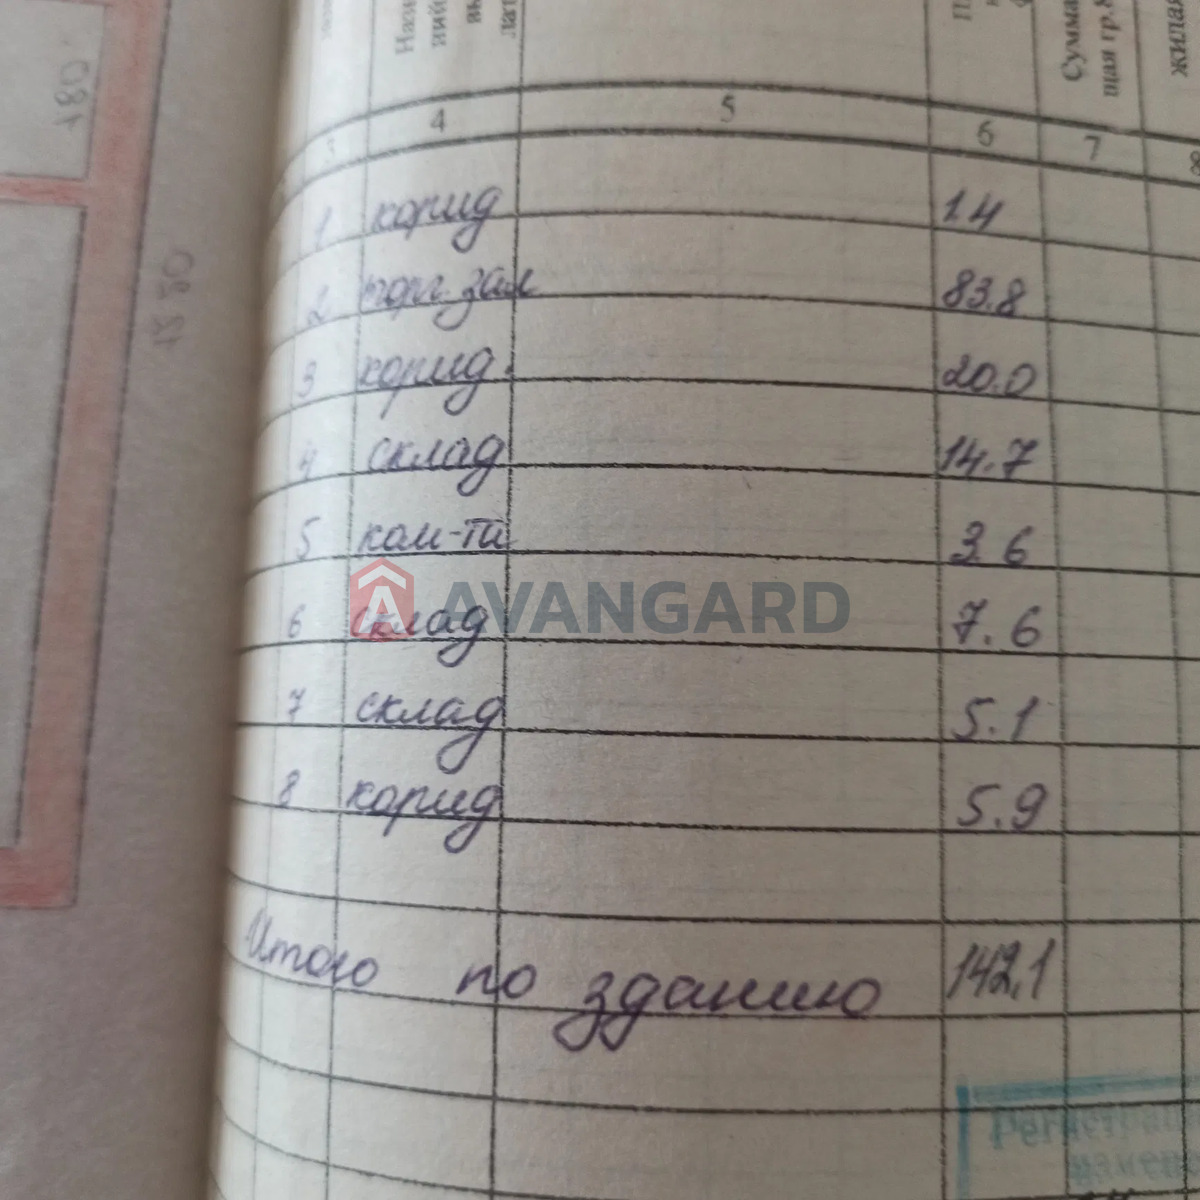 180
1850
4 5 6 7 8
3
Сумма
щая гр.8
жилая
1 корид 1.4
2 торг. зал 83.8
3 корид. 20.0
4 склад 14.7
5 ком-та 3.6
6 склад 7.6
7 склад 5.1
8 корид 5.9
Итого по зданию 142,1
AVANGARD